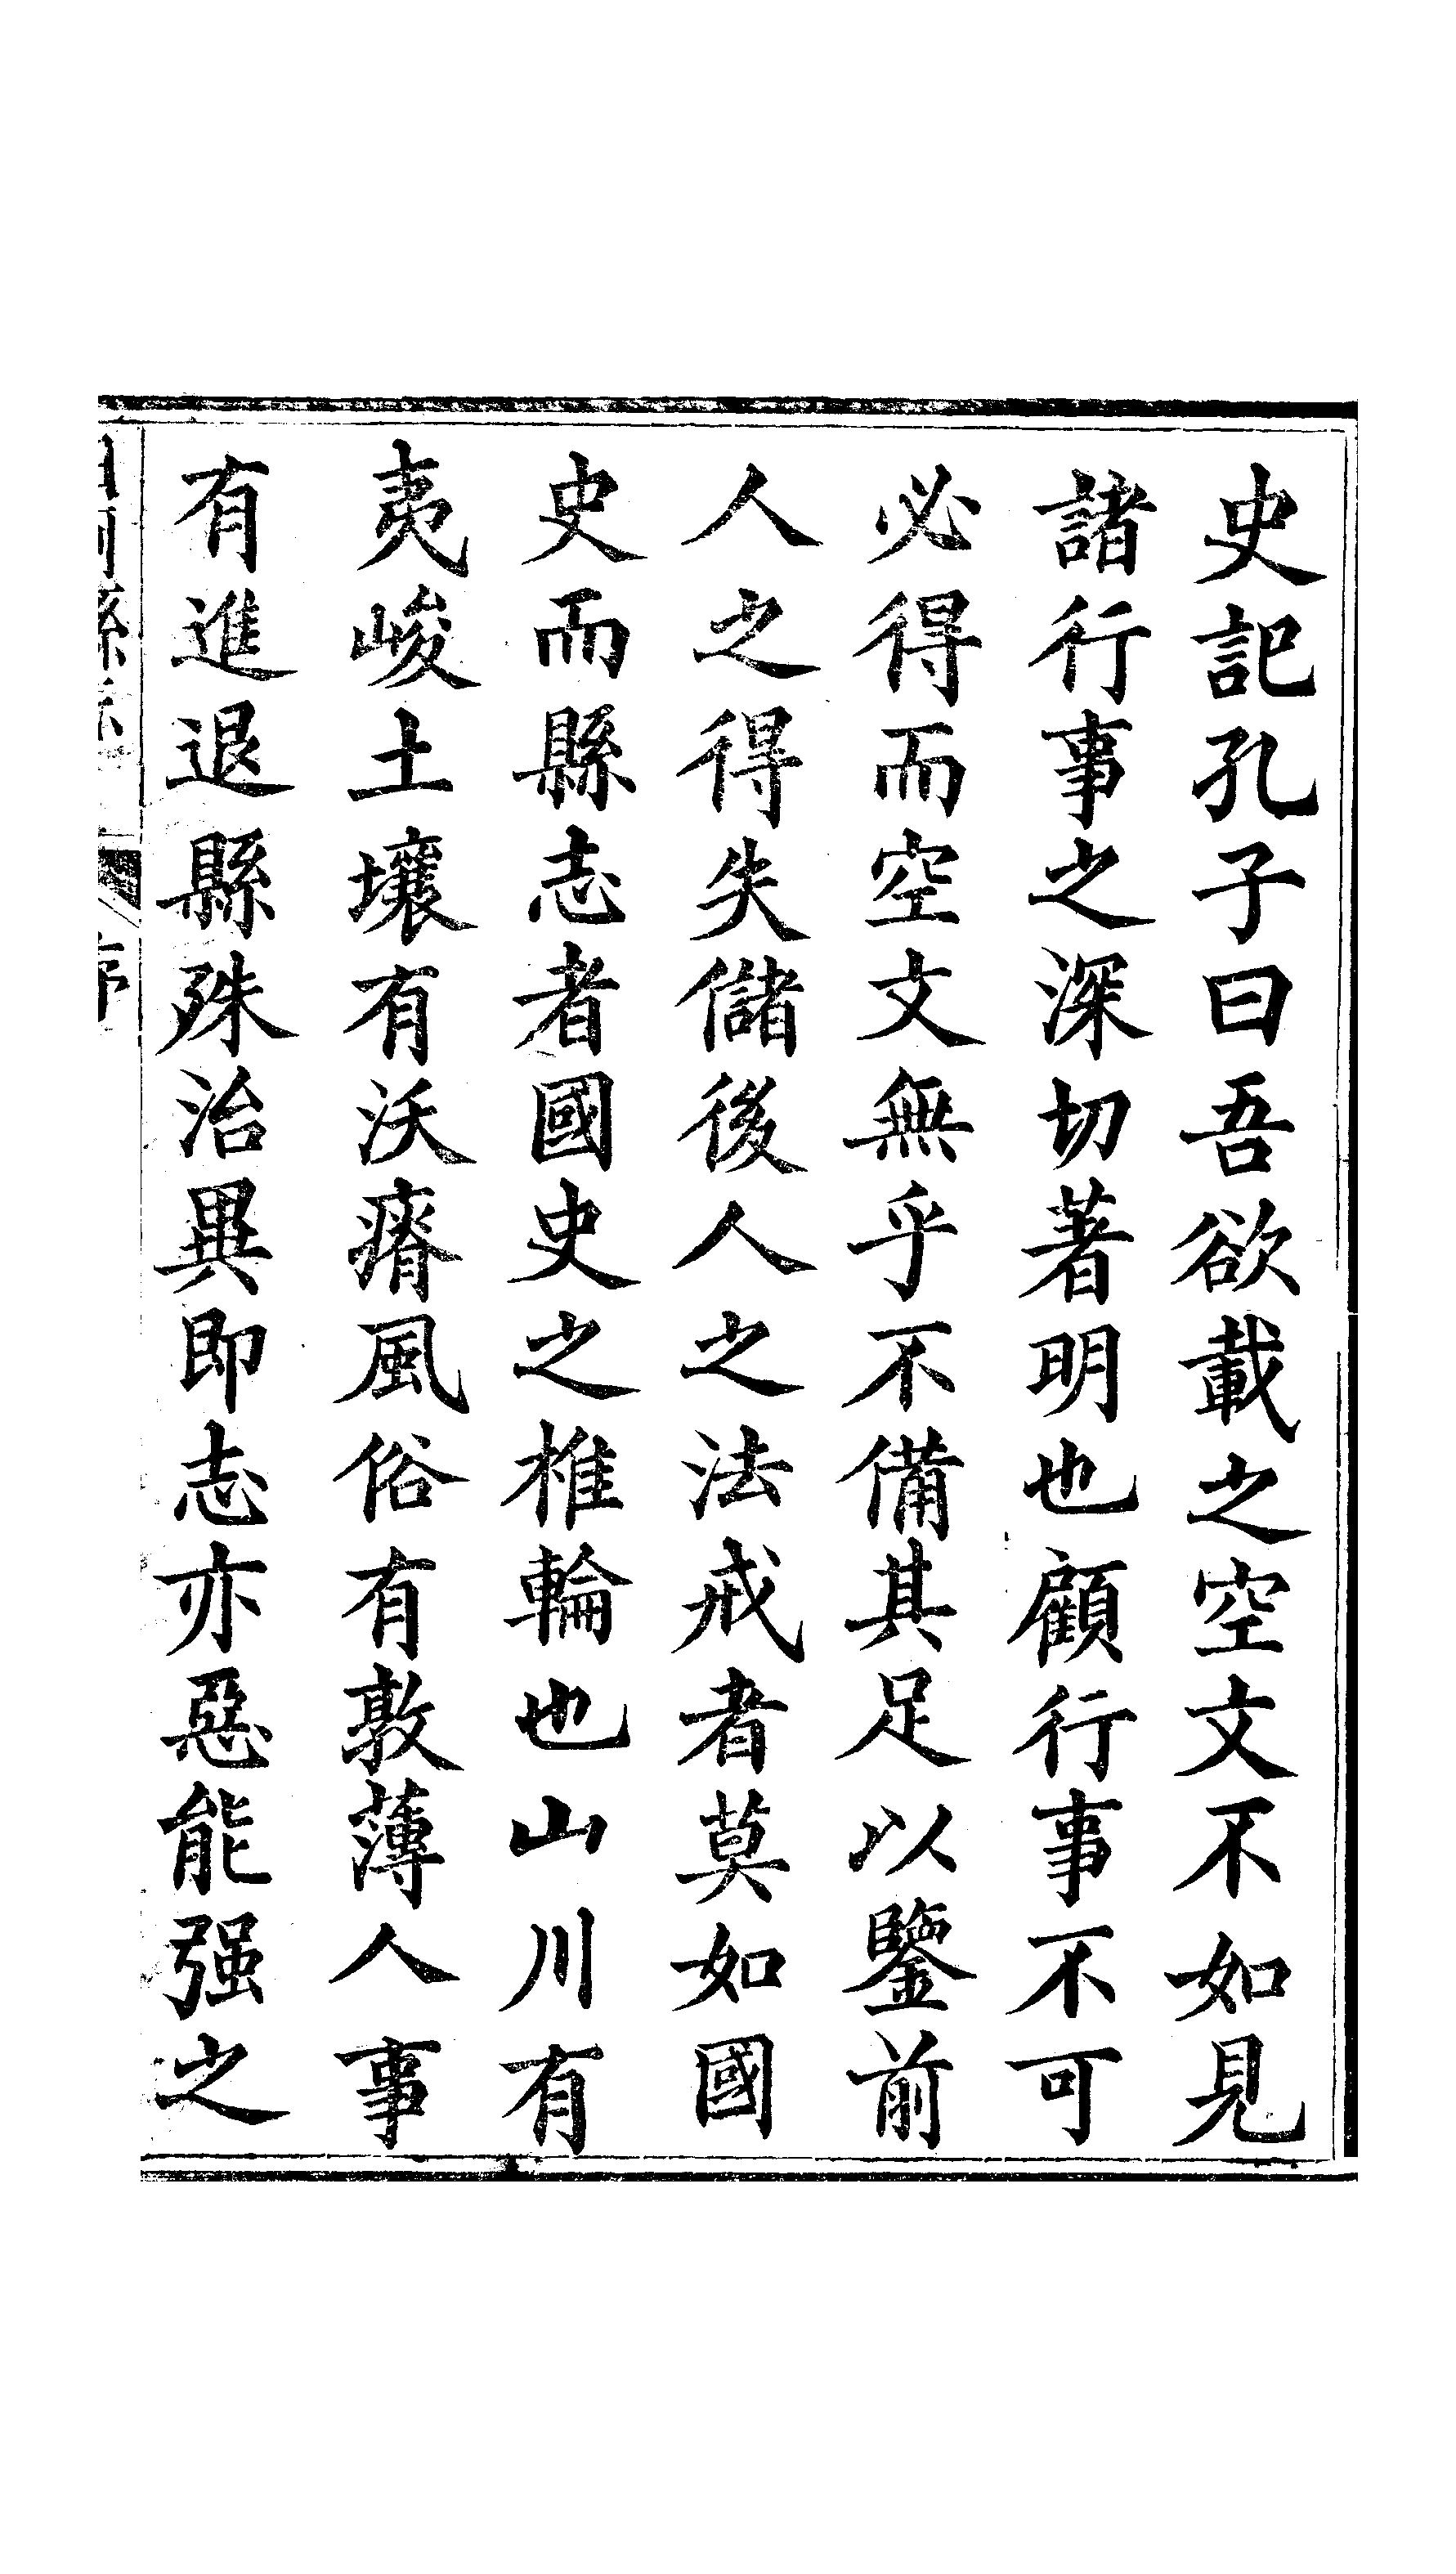 史記孔子曰吾欲載之空文不如見
諸行事之深切著明也顧行事不可
必得而空文無乎不備其足以鑒前
人之得失儲後人之法戒者莫如國
史而縣志者國史之椎輪也山川有
夷峻土壤有沃瘠風俗有敦薄人事
有進退縣殊治異即志亦惡能强之
縣志 序